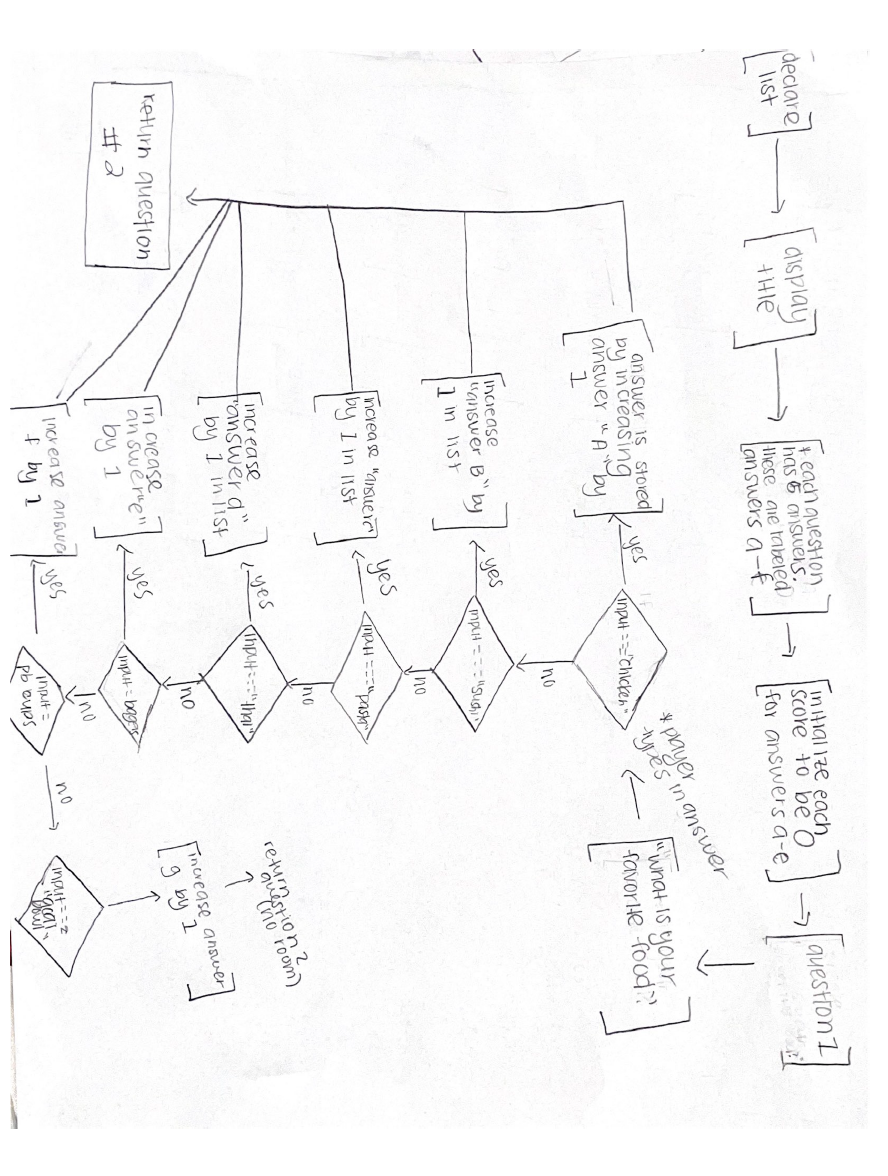 declare
list
display
title
*each question
has 6 answers.
these are labeled
answers a-f
initialize each
score to be 0
for answers a-e
question 1
"What is your
favorite food?"
*player
types in answer
If
input==="chicken"
yes
no
answer is stored
by increasing
answer "A" by
1
input==="sushi"
yes
no
increase
"answer B" by
1 in list
input==="pasta"
yes
no
increase "answer c"
by 1 in list
input==="thai"
yes
no
increase
"answer d"
by 1 in list
input=bagels
yes
no
increase
answer "e"
by 1
input=
yes
no
increase answer
f by 1
input===
increase answer
g by 1
return
question 2
(no room)
return question
#2